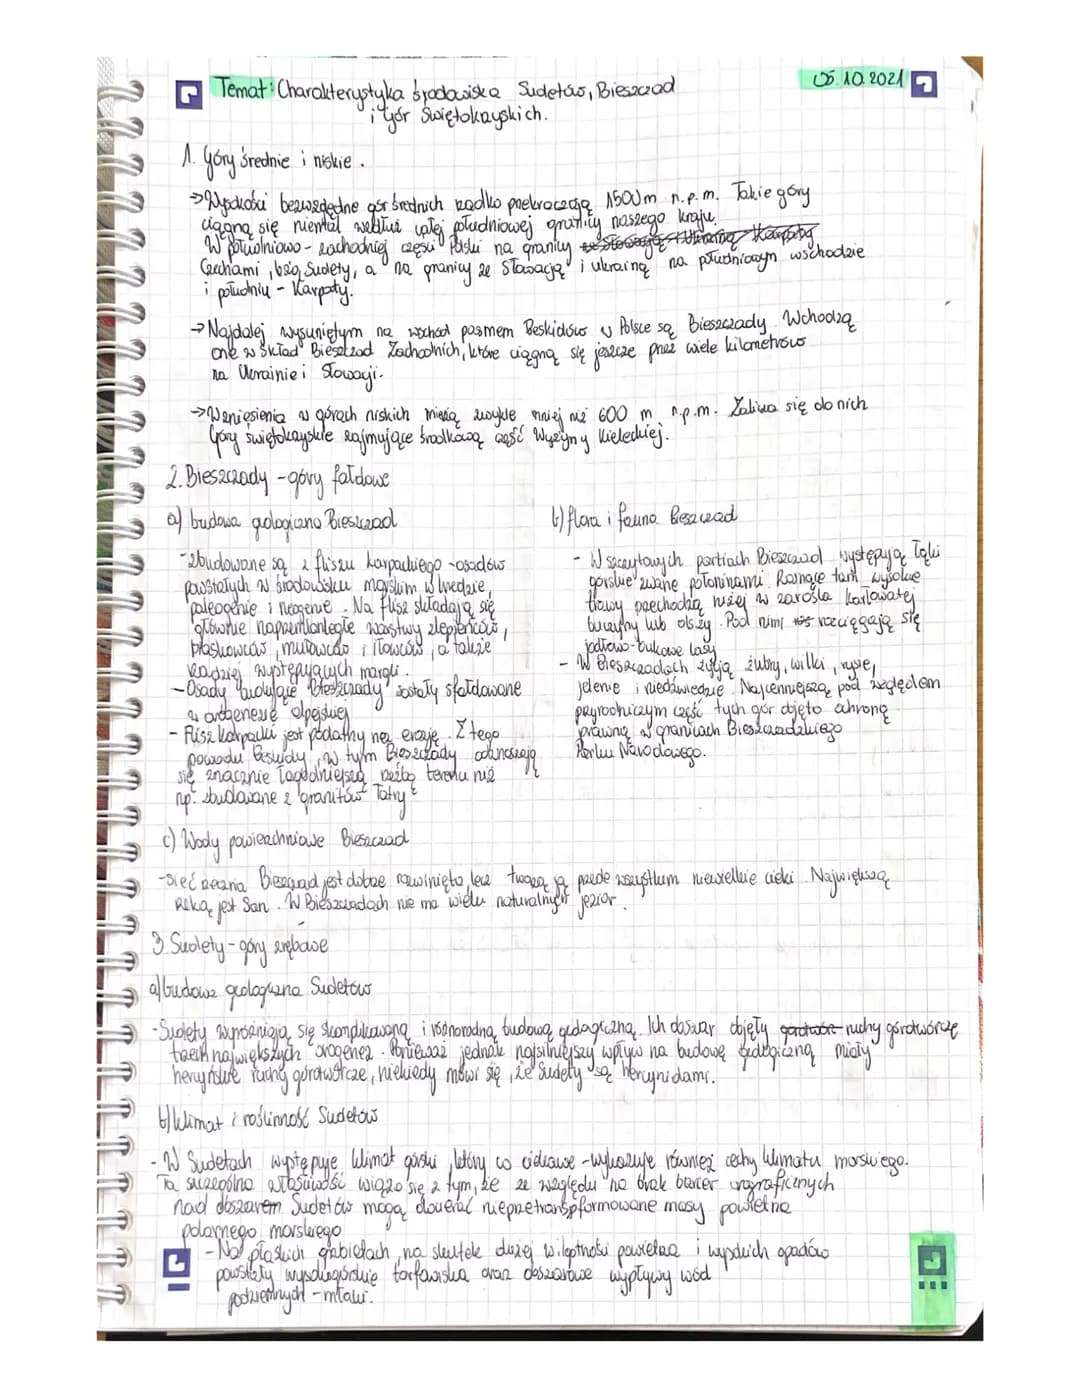 05.10.2021
Temat: Charakterystyka środowiska Sudetów, Bieszczad
i Gór Świętokrzyskich.
1. Góry średnie i niskie.
→Wysokości bezwzględne gór średnich rzadko przekraczają 1500m n.p.m. Takie góry
ciągną się niemal wzdłuż całej południowej granicy naszego kraju.
W południowo-zachodniej części Polski na granicy
Czechami, są Sudety, a na granicy ze Słowacją i Ukrainą na południowym wschodzie
i południu - Karpaty.
→Najdalej wysuniętym na wschód pasmem Beskidów w Polsce są Bieszczady. Wchodzą
one w skład Bieszczad Zachodnich, które ciągną się jeszcze przez wiele kilometrów
na Ukrainie i Słowacji.
→Wzniesienia w górach niskich mierzą zwykle mniej niż 600 m n.p.m. Zalicza się do nich
Góry Świętokrzyskie zajmujące środkową część Wyżyny Kieleckiej.
2. Bieszczady - góry fałdowe
a) budowa geologiczna Bieszczad
-zbudowane są z fliszu karpackiego -osadów
powstałych w środowisku morskim w kredzie,
paleogenie i neogenie. Na flisz składają się
głównie naprzemianległe warstwy zlepieńców,
piaskowców, mułowców i iłowców, a także
rzadziej występujących margli.
-Osady budujące Bieszczady zostały sfałdowane
w orogenezie alpejskiej
- Flisz karpacki jest podatny na erozję. Z tego
powodu Beskidy, w tym Bieszczady odznaczają
się znacznie łagodniejszą rzeźbą terenu niż
np. zbudowane z granitów Tatry
b) flora i fauna Bieszczad
- W szczytowych partiach Bieszczad występują łąki
górskie zwane połoninami. Rosnące tam wysokie
trawy przechodzą niżej w zarośla karłowatej
buczyny lub olszy. Pod nimi rozciągają się
jodłowo-bukowe lasy
- W Bieszczadach żyją żubry, wilki, rysie,
jelenie i niedźwiedzie. Najcenniejszą pod względem
przyrodniczym część tych gór objęto ochroną
prawną w granicach Bieszczadzkiego
Parku Narodowego.
c) Wody powierzchniowe Bieszczad
-sieć rzeczna Bieszczad jest dobrze rozwinięta, lecz tworzą ją przede wszystkim niewielkie cieki. Największą
Rzeką jest San. W Bieszczadach nie ma wielu naturalnych jezior.
3. Sudety - góry zrębowe
a) budowa geologiczna Sudetów
-Sudety wyróżniają się skomplikowaną i różnorodną budową geologiczną. Ich obszar objęły ruchy górotwórcze
trzech największych orogenez. Ponieważ jednak najsilniejszy wpływ na budowę geologiczną miały
hercyńskie ruchy górotwórcze, niekiedy mówi się, że Sudety są hercynidami.
b) klimat i roślinność Sudetów
- W Sudetach występuje klimat górski, który co ciekawe -wykazuje również cechy klimatu morskiego.
Ta szczególna właściwość wiąże się z tym, że ze względu na brak barier orograficznych
nad obszarem Sudetów mogą docierać nieprzetransformowane masy powietrza
polarnego morskiego
- Na płaskich grzbietach na skutek dużej wilgotności powietrza i wysokich opadów
powstały wysokogórskie torfowiska oraz obszarowe wypływy wód
podziemnych - młaki.